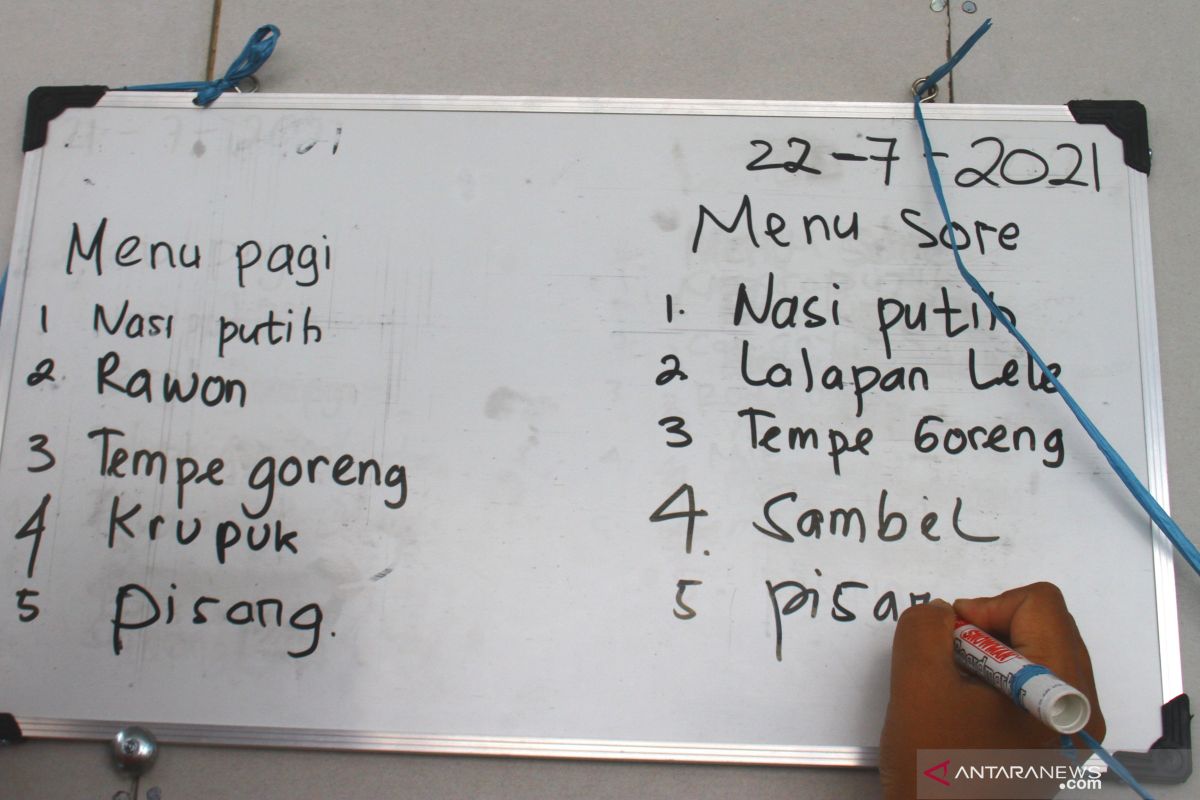 22-7-2021
Menu pagi
1 Nasi putih
2. Rawon
3 Tempe goreng
4 Krupuk
5 Pisang.
Menu Sore
1. Nasi putih
2. Lalapan Lele
3 Tempe Goreng
4. Sambel
5 pisan
SNOWMAN
Boardmarker
ANTARANEWS
.com